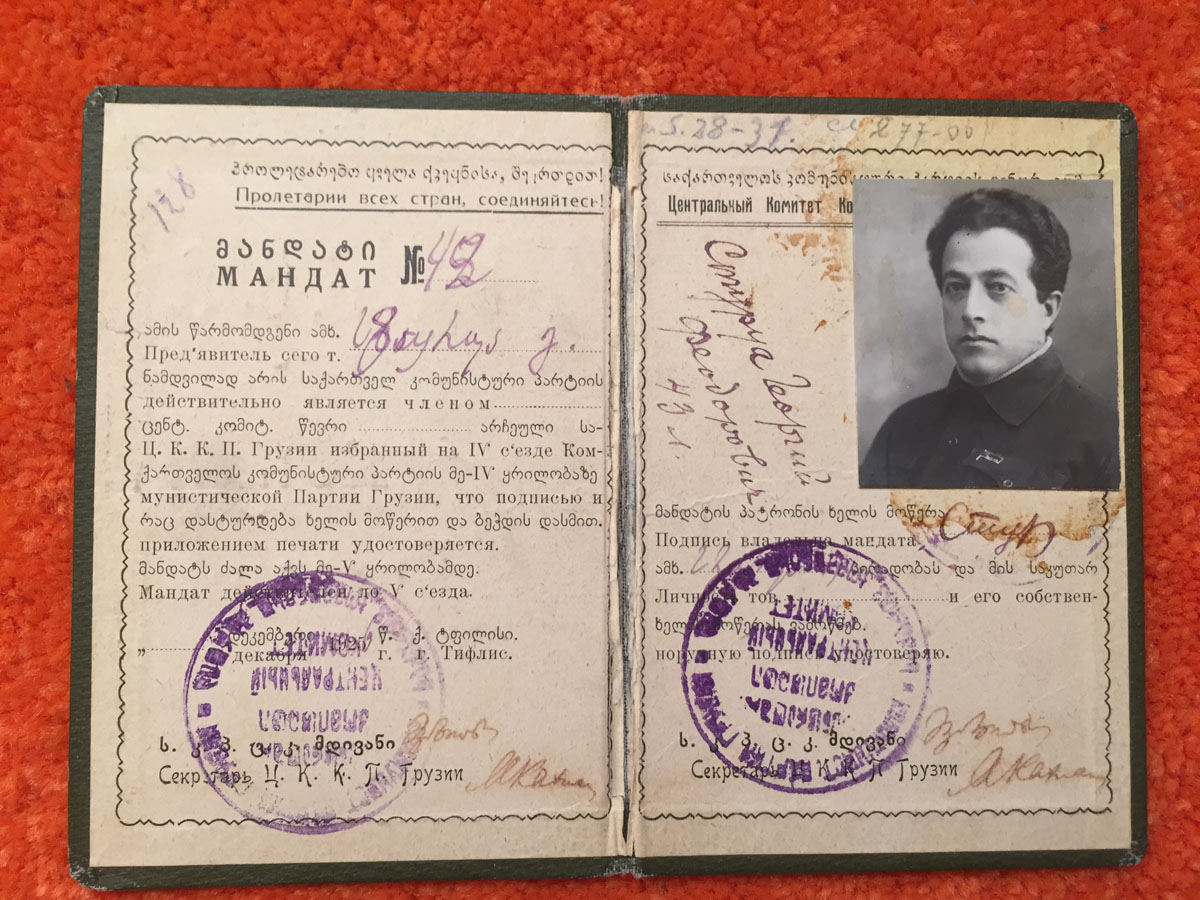 128
პროლეტარებო ყველა ქვეყნისა, შეერთდით!
Пролетарии всех стран, соединяйтесь!
მანდატი
МАНДАТ №
ამის წარმომდგენი ამხ.
Пред'явитель сего т.
ნამდვილად არის საქართველ კომუნისტური პარტიის
действительно является членом
ცენტ. კომიტ. წევრი არჩეული სა-
Ц. К. К. П. Грузии избранный на IV с'езде Ком-
ქართველოს კომუნისტური პარტიის მე-IV ყრილობაზე
мунистической Партии Грузии, что подписью и
რაც დასტურდება ხელის მოწერით და ბეჭდის დასმით.
приложением печати удостоверяется.
მანდატს ძალა აქვს მე-V ყრილობამდე.
Мандат действителен до V с'езда.
დეკემბერი 1925 წ. ქ. ტფილისი.
декабря г. г. Тифлис.
ს. კ. პ. ც. კ. მდივანი
Секретарь Ц. К. К. П. Грузии
ЦЕНТРАЛЬНЫЙ
КОМИТЕТ
5. 28-37. 277-00
საქართველოს კომუნისტური პარტიის
Центральный Комитет
Стуруа Георгий
Феодорович
43 л.
მანდატის პატრონის ხელის მოწერა
Подпись владельца мандата
Стуруа
ამხ. პირადობას და მის საკუთარ
Личность тов. и его собствен-
ხელის მოწერას ვამოწმებ.
норучную подпись удостоверяю.
ს. კ. პ. ც. კ. მდივანი
Секретарь Ц К К П Грузии
ЦЕНТРАЛЬНЫЙ
КОМИТЕТ